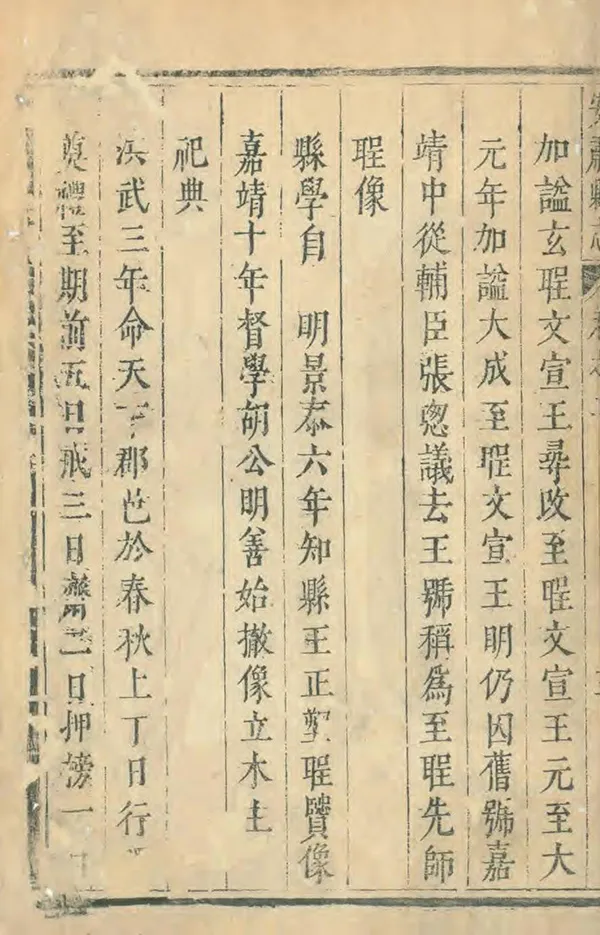 安肅縣志 卷之
加諡玄聖文宣王尋改至聖文宣王元至大
元年加諡大成至聖文宣王明仍因舊號嘉
靖中從輔臣張愡議去王號稱為至聖先師
聖像
縣學自 明景泰六年知縣王正塑聖賢像
嘉靖十年督學胡公明善始撤像立木主
祀典
洪武三年命天下郡邑於春秋上丁日行
奠禮至期前五日戒三日齋二日押榜一日